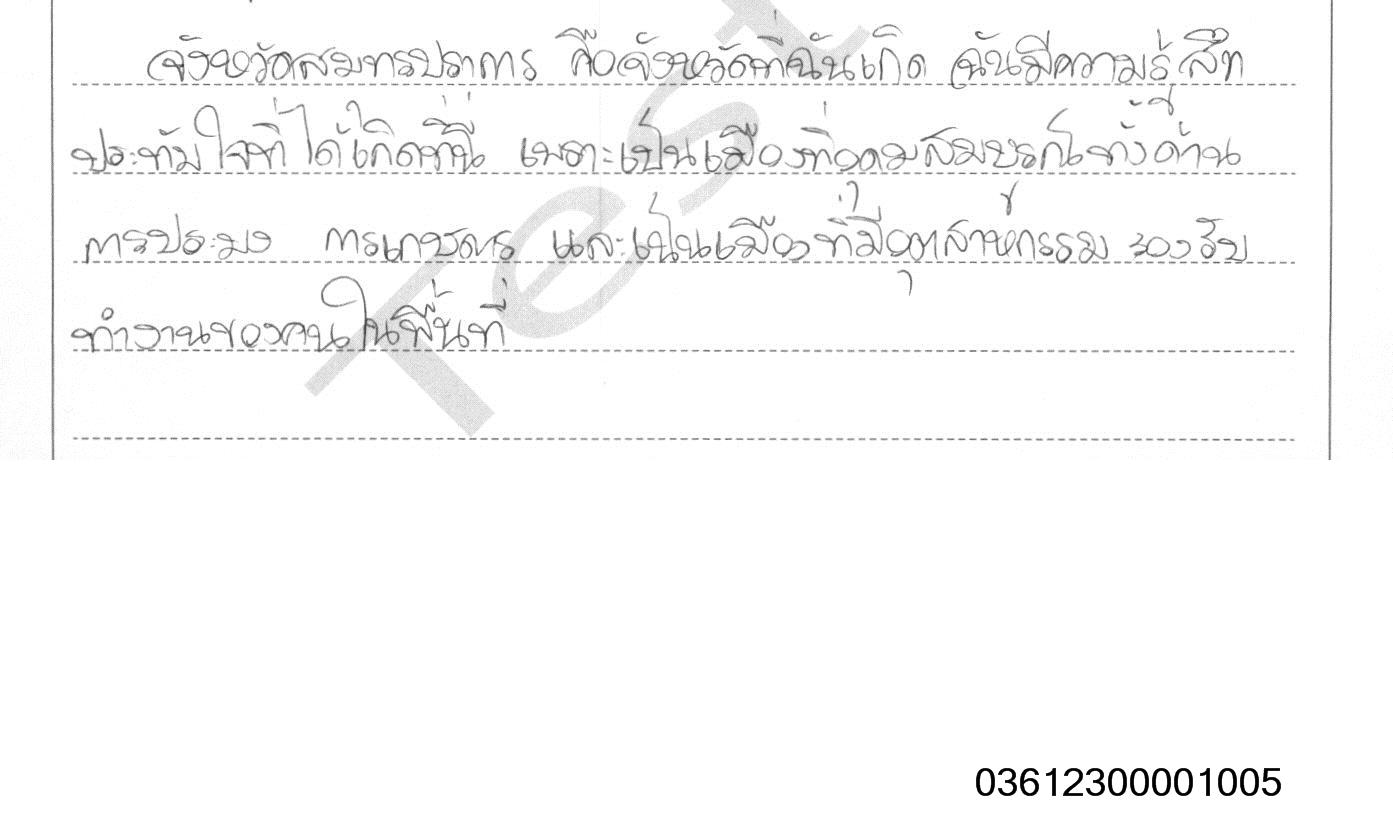 จังหวัดสมทรปราการ คือจังหวัดที่ฉันเกิด ฉันมีความรู้สึก
ประทับใจที่ได้เกิดที่นี่ เพราะเป็นเมืองที่อดมสมบรณ์ทั้งด้าน
การประมง การเกษตร และเป็นเมืองที่มีอุตสาห์กรรม รองรับ
ทำงานของคนในพื้นที่
Test
03612300001005